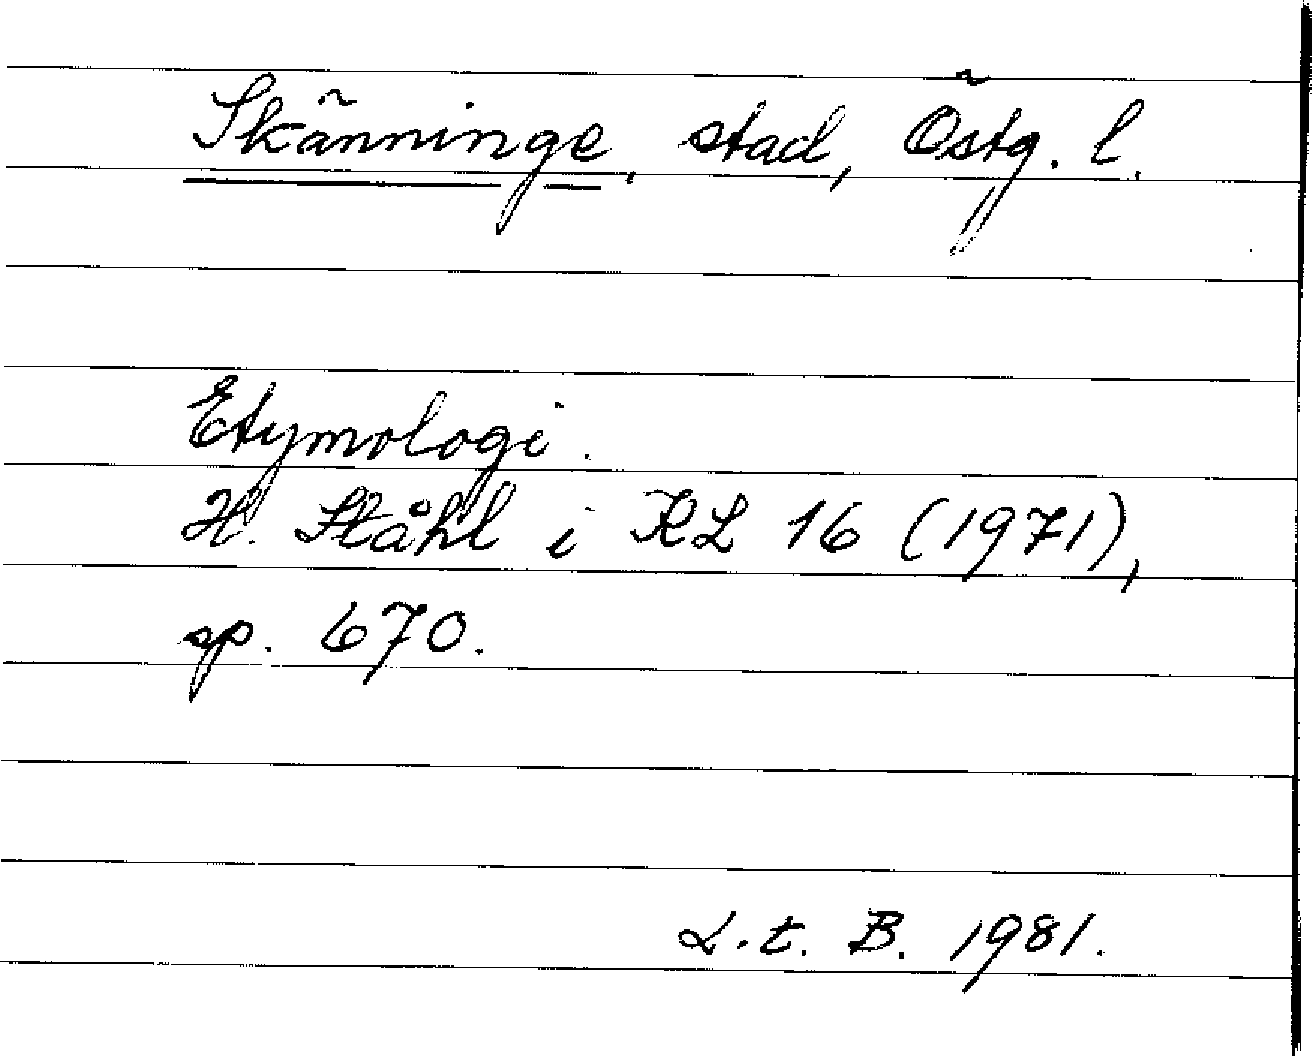 Skänninge, stad, Östg. l.
Etymologi.
H. Ståhl i KL 16 (1971),
sp. 670.
L.t. B. 1981.